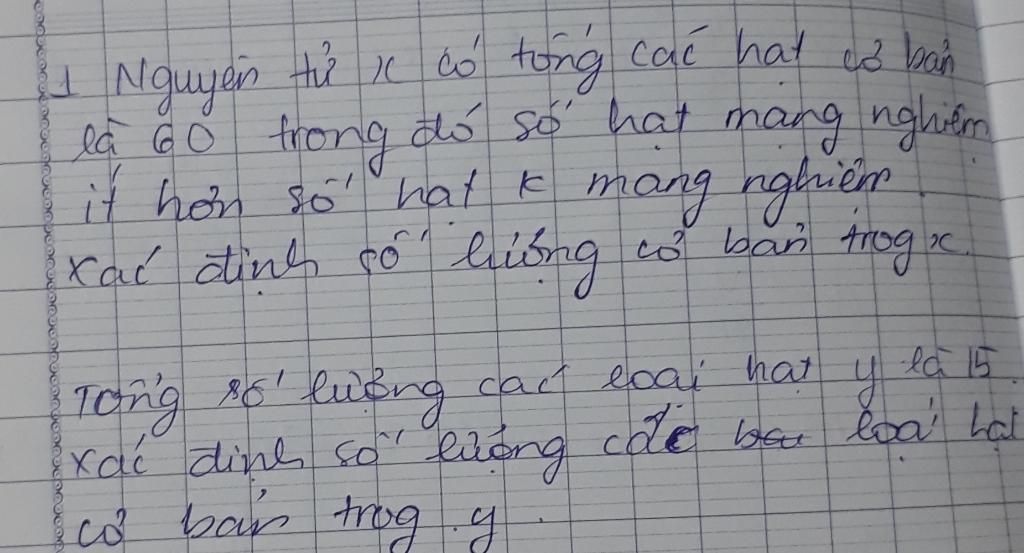 1 Nguyên tử x có tổng các hạt cơ bản
là 60 trong đó số hạt mang nghiêm
ít hơn số hạt k mang nghiêm.
xác định số lượng cơ bản trog x.
Tổng số lượng các loại hạt y là 15.
xác định số lượng các loại hạt
cơ bản trog y.